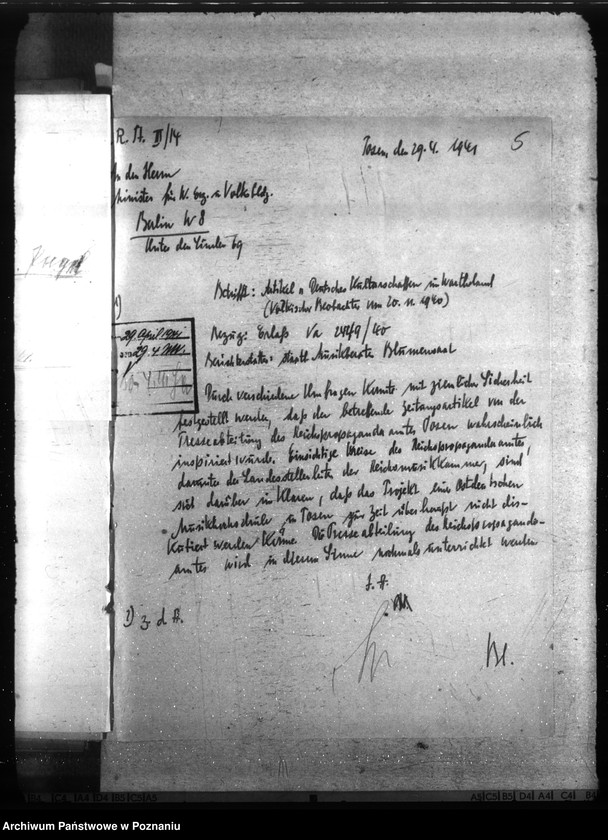 R. St. II/14
Posen, den 29. 4. 1941
5
An den Herrn
Minister für W. Erz. u. Volksbldg.
Berlin W 8
Unter den Linden 69
Betrifft: Artikel „Deutsches Kulturschaffen im Wartheland
(Völkischer Beobachter vom 20. 11. 1940)
Bezug: Erlaß Va 2479/40
Berichterstatter: staatl. Musikberater Blumensaat
29. April 1941
29. 4.
Durch verschiedene Umfragen konnte mit ziemlicher Sicherheit
festgestellt werden, daß der betreffende Zeitungsartikel von der
Presseabteilung des Reichspropagandaamtes Posen wahrscheinlich
inspiriert wurde. Einsichtige Kreise des Reichspropagandaamtes,
darunter der Landesstellenleiter der Reichsmusikkammer, sind
sich darüber im Klaren, daß das Projekt einer Ostdeutschen
Musikhochschule in Posen zur Zeit überhaupt nicht dis-
kutiert werden könne. Die Presseabteilung des Reichspropaganda-
amtes wird in diesem Sinne nochmals unterrichtet werden
J. A.
2) z. d. A.
Bl.
A5 C5 B5 D4 A4 C4 B4
Archiwum Państwowe w Poznaniu